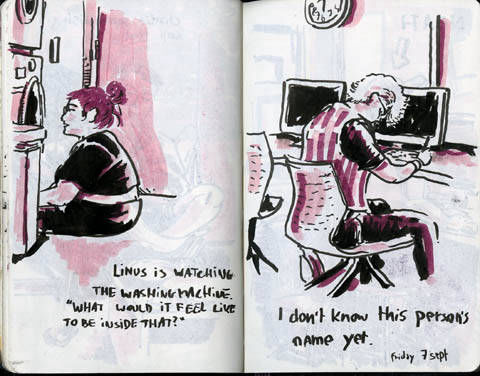 LINUS IS WATCHING
THE WASHING MACHINE.
"WHAT WOULD IT FEEL LIKE
TO BE INSIDE THAT?"
I don't know this person's
name yet.
friday 7 sept